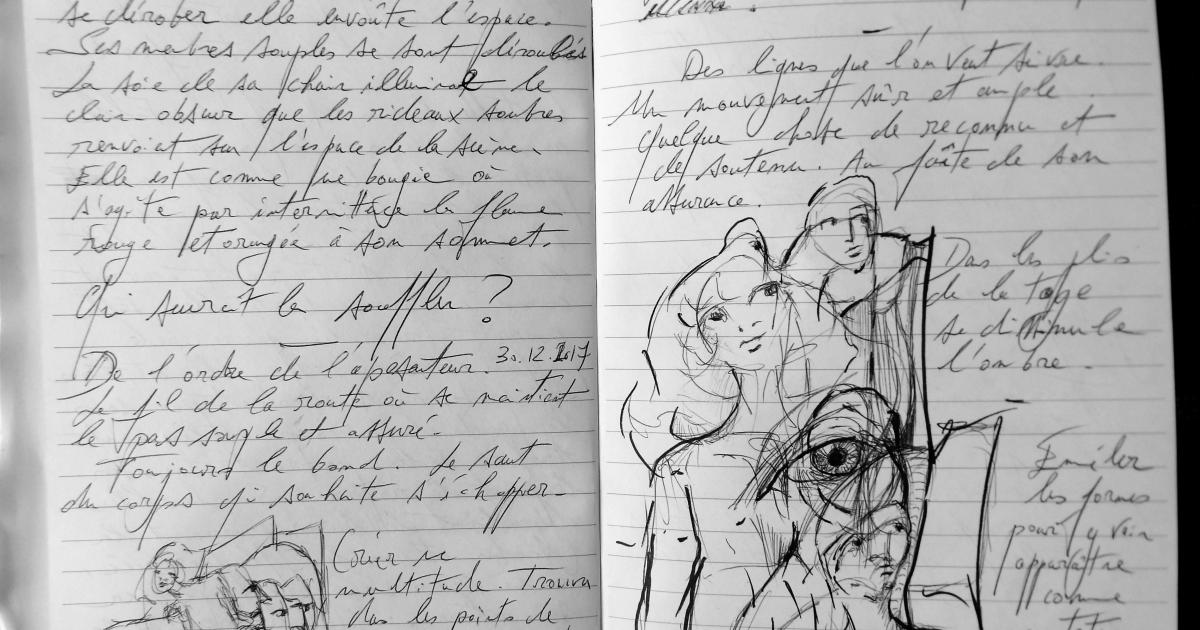 se dérober elle envoûte l'espace.
Ses membres souples se sont déroulés
La soie de sa chair illumine le
clair-obscur que les rideaux sombres
renvoient sur l'espace de la scène.
Elle est comme une bougie où
s'agite par intermittence la flamme
rouge et orangée à son sommet.
Qui saurait la souffler ?
De l'ordre de l'apesanteur. 30.12.2017
Le fil de la route où se maintient
le pas souple et assuré.
Toujours le bond. Le saut
du corps qui souhaite s'échapper.
Créer une
multitude. Trouver
dans les points de
Des lignes que l'on veut suivre.
Un mouvement sûr et ample.
Quelque chose de reconnu et
de soutenu. Au faîte de son
assurance.
Dans les plis
de la toge
se dissimule
l'ombre.
les formes
pour y voir
apparaître
comme